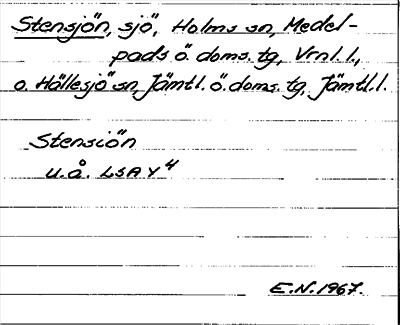 Stensjön, sjö, Holms sn, Medel-
pads ö. doms. tg, Vrnl. l.,
o. Hällesjö sn, Jämtl. ö. doms. tg, Jämtl. l.
Stensiön
u.å. LSA Y4
E.N. 1967.